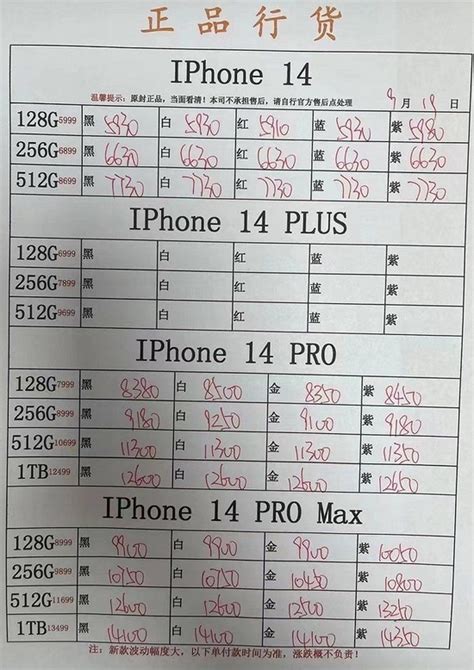 正品行货
IPhone 14
温馨提示：原封正品，当面看清！本司不承担售后，请自行官方售后点处理 9月19日
128G5999 黑 5930 白 5930 红 5910 蓝 5930 紫 5980
256G6899 黑 6630 白 6630 红 6630 蓝 6630 紫 6630
512G8699 黑 7730 白 7730 红 7730 蓝 7730 紫 7730
IPhone 14 PLUS
128G6999 黑 白 红 蓝 紫
256G7899 黑 白 红 蓝 紫
512G9699 黑 白 红 蓝 紫
IPhone 14 PRO
128G7999 黑 8380 白 8500 金 8350 紫 8450
256G8999 黑 9180 白 9250 金 9100 紫 9400
512G10699 黑 11300 白 11300 金 11300 紫 11350
1TB12499 黑 12600 白 12600 金 12600 紫 12650
IPhone 14 PRO Max
128G8999 黑 9900 白 9900 金 9900 紫 10050
256G9899 黑 10750 白 10750 金 10450 紫 10800
512G11699 黑 12600 白 12600 金 12500 紫 13250
1TB13499 黑 14100 白 14100 金 14100 紫 14350
注：新款波动幅度大，以下单付款时间为准，涨跌概不负责！